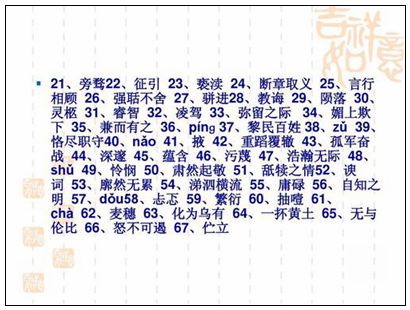 吉祥如意
21、旁骛22、征引 23、亵渎 24、断章取义 25、言行
相顾 26、强聒不舍 27、骈进28、教诲 29、陨落 30、
灵柩 31、睿智 32、凌驾 33、弥留之际 34、媚上欺
下 35、兼而有之 36、pínɡ 37、黎民百姓 38、zǔ 39、
恪尽职守40、nǎo 41、掖 42、重蹈覆辙 43、孤军奋
战 44、深邃 45、蕴含 46、污蔑 47、浩瀚无际 48、
shǔ 49、怜悯 50、肃然起敬 51、舐犊之情52、谀
词 53、廓然无累 54、涕泗横流 55、庸碌 56、自知之
明 57、dǒu58、忐忑 59、繁衍 60、抽噎 61、
chà 62、麦穗 63、化为乌有 64、一抔黄土 65、无与
伦比 66、怒不可遏 67、伫立